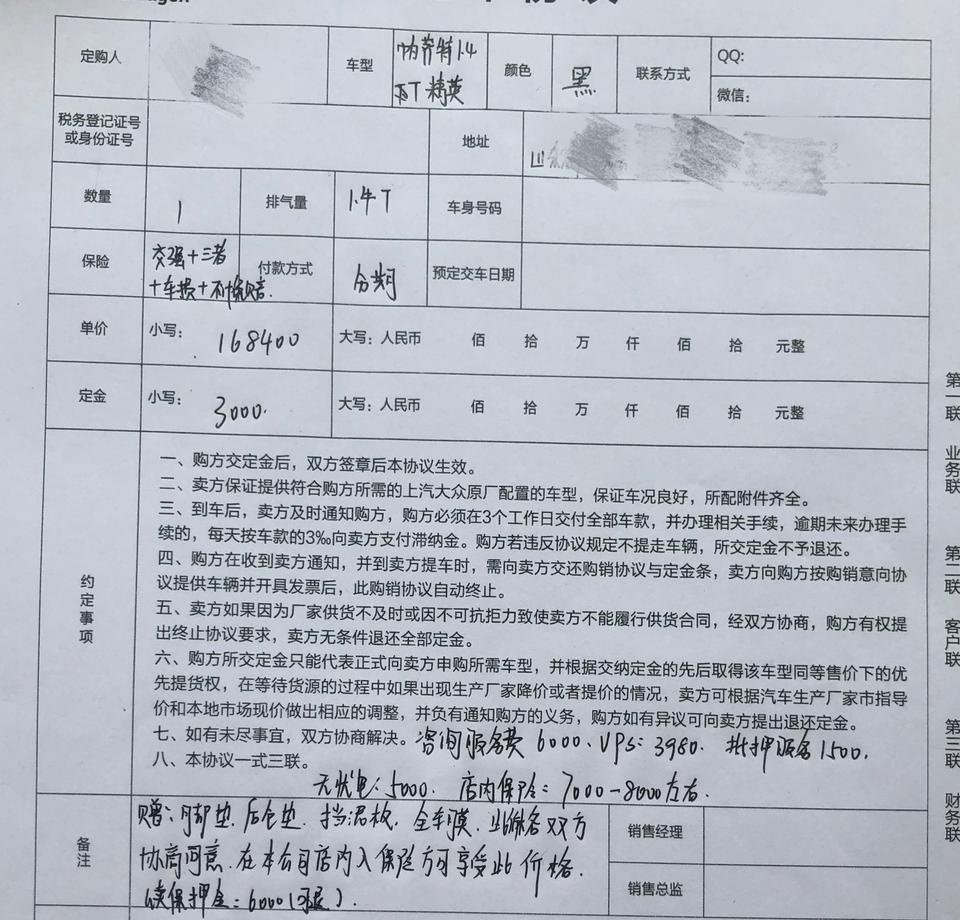 定购人
车型 帕萨特1.4T 精英
颜色 黑
联系方式
QQ:
微信:
税务登记证号或身份证号
地址 山
数量 1
排气量 1.4T
车身号码
保险 交强+三者+车损+不计免赔
付款方式 分期
预定交车日期
单价 小写: 168400 大写: 人民币 佰 拾 万 仟 佰 拾 元整
定金 小写: 3000. 大写: 人民币 佰 拾 万 仟 佰 拾 元整
约定事项
一、购方交定金后，双方签章后本协议生效。
二、卖方保证提供符合购方所需的上汽大众原厂配置的车型，保证车况良好，所配附件齐全。
三、到车后，卖方及时通知购方，购方必须在3个工作日交付全部车款，并办理相关手续，逾期未来办理手
续的，每天按车款的3‰向卖方支付滞纳金。购方若违反协议规定不提走车辆，所交定金不予退还。
四、购方在收到卖方通知，并到卖方提车时，需向卖方交还购销协议与定金条，卖方向购方按购销意向协
议提供车辆并开具发票后，此购销协议自动终止。
五、卖方如果因为厂家供货不及时或因不可抗拒力致使卖方不能履行供货合同，经双方协商，购方有权提
出终止协议要求，卖方无条件退还全部定金。
六、购方所交定金只能代表正式向卖方申购所需车型，并根据交纳定金的先后取得该车型同等售价下的优
先提货权，在等待货源的过程中如果出现生产厂家降价或者提价的情况，卖方可根据汽车生产厂家市指导
价和本地市场现价做出相应的调整，并负有通知购方的义务，购方如有异议可向卖方提出退还定金。
七、如有未尽事宜，双方协商解决。咨询服务费 6000、VPS: 3980. 抵押服务1500.
八、本协议一式三联。
无忧电: 5000. 店内保险: 7000-8000左右.
备注
赠: 脚垫. 后仓垫. 挡泥板. 全车膜. 此价格双方
协商同意. 在本公司店内入保险方可享受此价格.
(续保押金: 6000(可退).
销售经理
销售总监
第一联 业务联
第二联 客户联
第三联 财务联